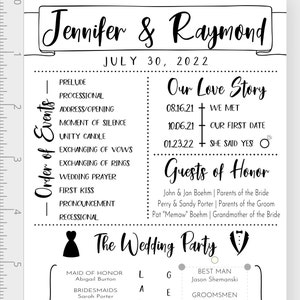 Jennifer & Raymond
JULY 30, 2022
Order of Events
PRELUDE
PROCESSIONAL
ADDRESS/OPENING
MOMENT OF SILENCE
UNITY CANDLE
EXCHANGING OF VOWS
EXCHANGING OF RINGS
WEDDING PRAYER
FIRST KISS
PRONOUNCEMENT
RECESSIONAL
Our Love Story
08.16.21 WE MET
10.06.21 OUR FIRST DATE
01.23.22 SHE SAID YES
Guests of Honor
John & Jan Boehm | Parents of the Bride
Perry & Sandy Porter | Parents of the Groom
Pat "Memaw" Boehm | Grandmother of the Bride
The Wedding Party
MAID OF HONOR
Abigail Burton
BRIDESMAIDS
Sarah Porter
L G
A E
BEST MAN
Jason Shemanski
GROOMSMEN
0
1
2
3
4
5